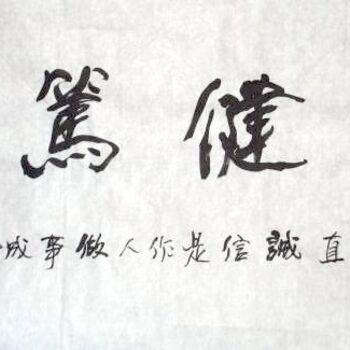 健篤
直誠信是作人做事成